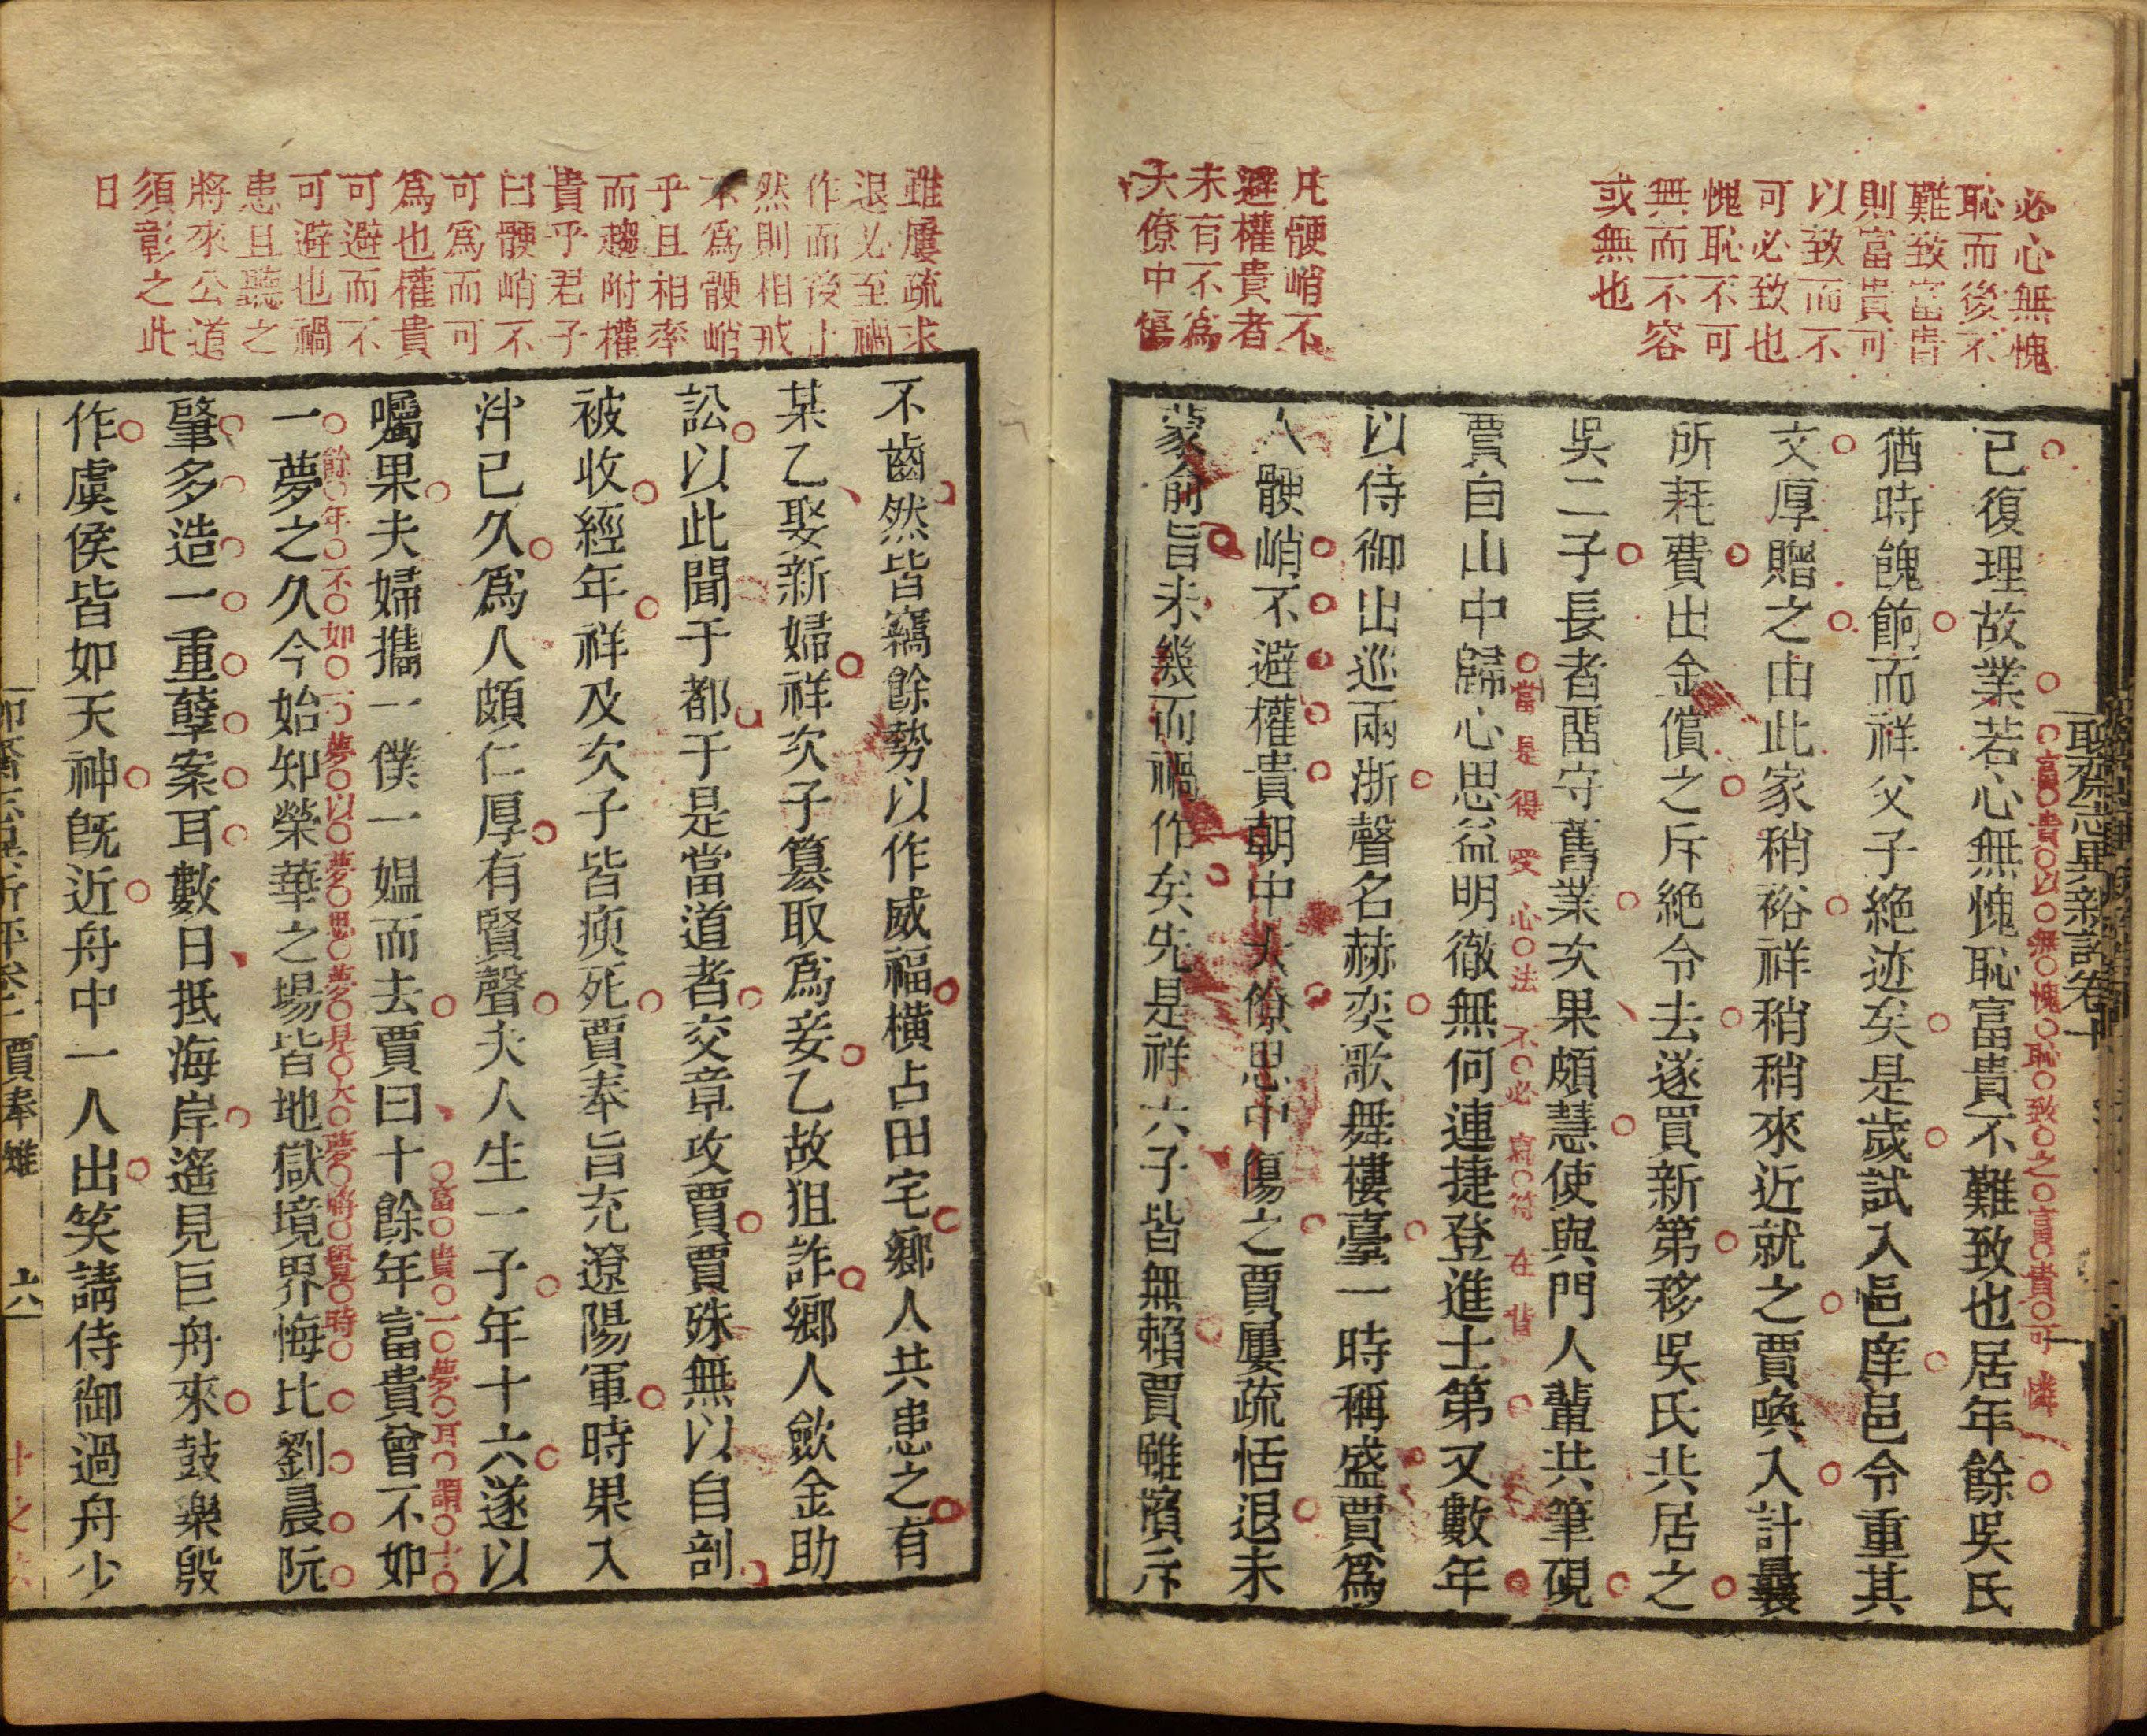 必心無愧
恥而後不
難致富貴
則富貴可
以致而不
可必致也
愧恥不可
無而不容
或無也
凡骾峭不
避權貴者
未有不爲
大僚中傷
聊齋志異新評卷十
已復理故業若心無愧恥富貴不難致也居年餘吳氏
富貴以無愧恥致之富貴可憐
猶時餽餉而祥父子絶迹矣是歲試入邑庠邑令重其
文厚贈之由此家稍裕祥稍稍來近就之賈喚入計曩
所耗費出金償之斥絶令去遂買新第移吳氏共居之
吳二子長者畱守舊業次果頗慧使與門人輩共筆硯
賈自山中歸心思益明徹無何連捷登進士第又數年
當是得受心法不必寫符在背
以侍御出巡兩浙聲名赫奕歌舞樓臺一時稱盛賈爲
人骾峭不避權貴朝中大僚思中傷之賈屢疏恬退未
蒙俞旨未幾而禍作矣先是祥六子皆無賴賈雖擯斥
雖屢疏求
退必至禍
作而後止
然則相戒
不爲骾峭
乎且相率
而趨附權
貴乎君子
曰骾峭不
可爲而可
爲也權貴
可避而不
可避也禍
患且聽之
將來公道
須彰之此
日
不齒然皆竊餘勢以作威福橫占田宅鄉人共患之有
某乙娶新婦祥次子篡取爲妾乙故狙詐鄉人歛金助
訟以此聞于都于是當道者交章攻賈賈殊無以自剖
被收經年祥及次子皆瘐死賈奉旨充遼陽軍時杲入
泮已久爲人頗仁厚有賢聲夫人生一子年十六遂以
囑果夫婦攜一僕一媼而去賈曰十餘年富貴曾不如
富貴一夢耳謂十
餘年不如一夢以夢思夢是大夢將覺時
一夢之久今始知榮華之場皆地獄境界悔比劉晨阮
肇多造一重孽案耳數日抵海岸遙見巨舟來鼓樂殷
作虞侯皆如天神既近舟中一人出笑請侍御過舟少
賈奉雉
六